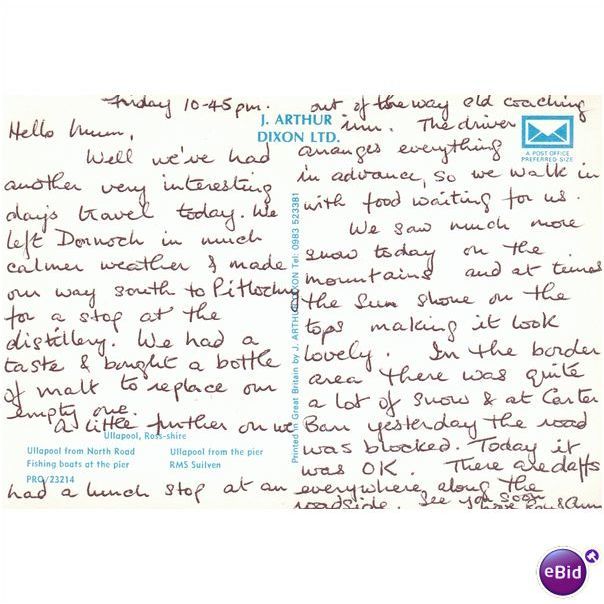 Friday 10-45pm.
Hello Mum,
Well we've had
another very interesting
days travel today. We
left Dornoch in much
calmer weather & made
our way south to Pitlochry
for a stop at the
distillery. We had a
taste & bought a bottle
of malt to replace our
empty one.
A little further on we
Ullapool, Ross-shire
Ullapool from North Road
Ullapool from the pier
Fishing boats at the pier
RMS Suilven
PRO/23214
had a lunch stop at an
J. ARTHUR
DIXON LTD.
Printed in Great Britain by J. ARTHUR DIXON Tel: 0983 523381
A POST OFFICE
PREFERRED SIZE
out of the way old coaching
inn. The driver
arranges everything
in advance, so we walk in
with food waiting for us.
We saw much more
snow today on the
mountains and at times
the sun shone on the
tops making it look
lovely. In the border
area there was quite
a lot of snow & at Carter
Barr yesterday the road
was blocked. Today it
was OK. There are daffs
everywhere along the
roadside. See you soon
love Ron & Ann
eBid